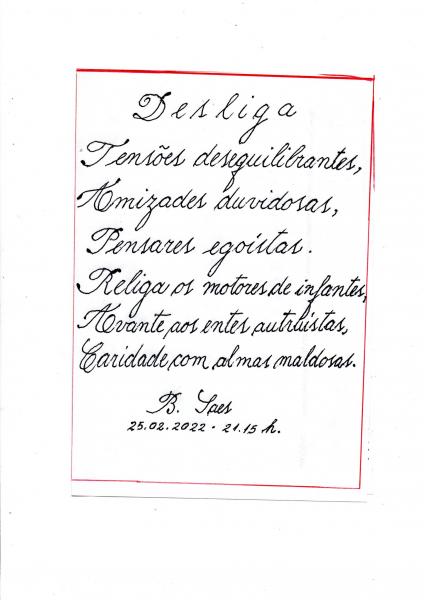 Desliga
Tensões desequilibrantes,
Amizades duvidosas,
Pensares egoístas.
Religa os motores de infantes,
Avante aos entes autruistas,
Caridade com almas maldosas.
B. Saes
25.02.2022 - 21.15 h.